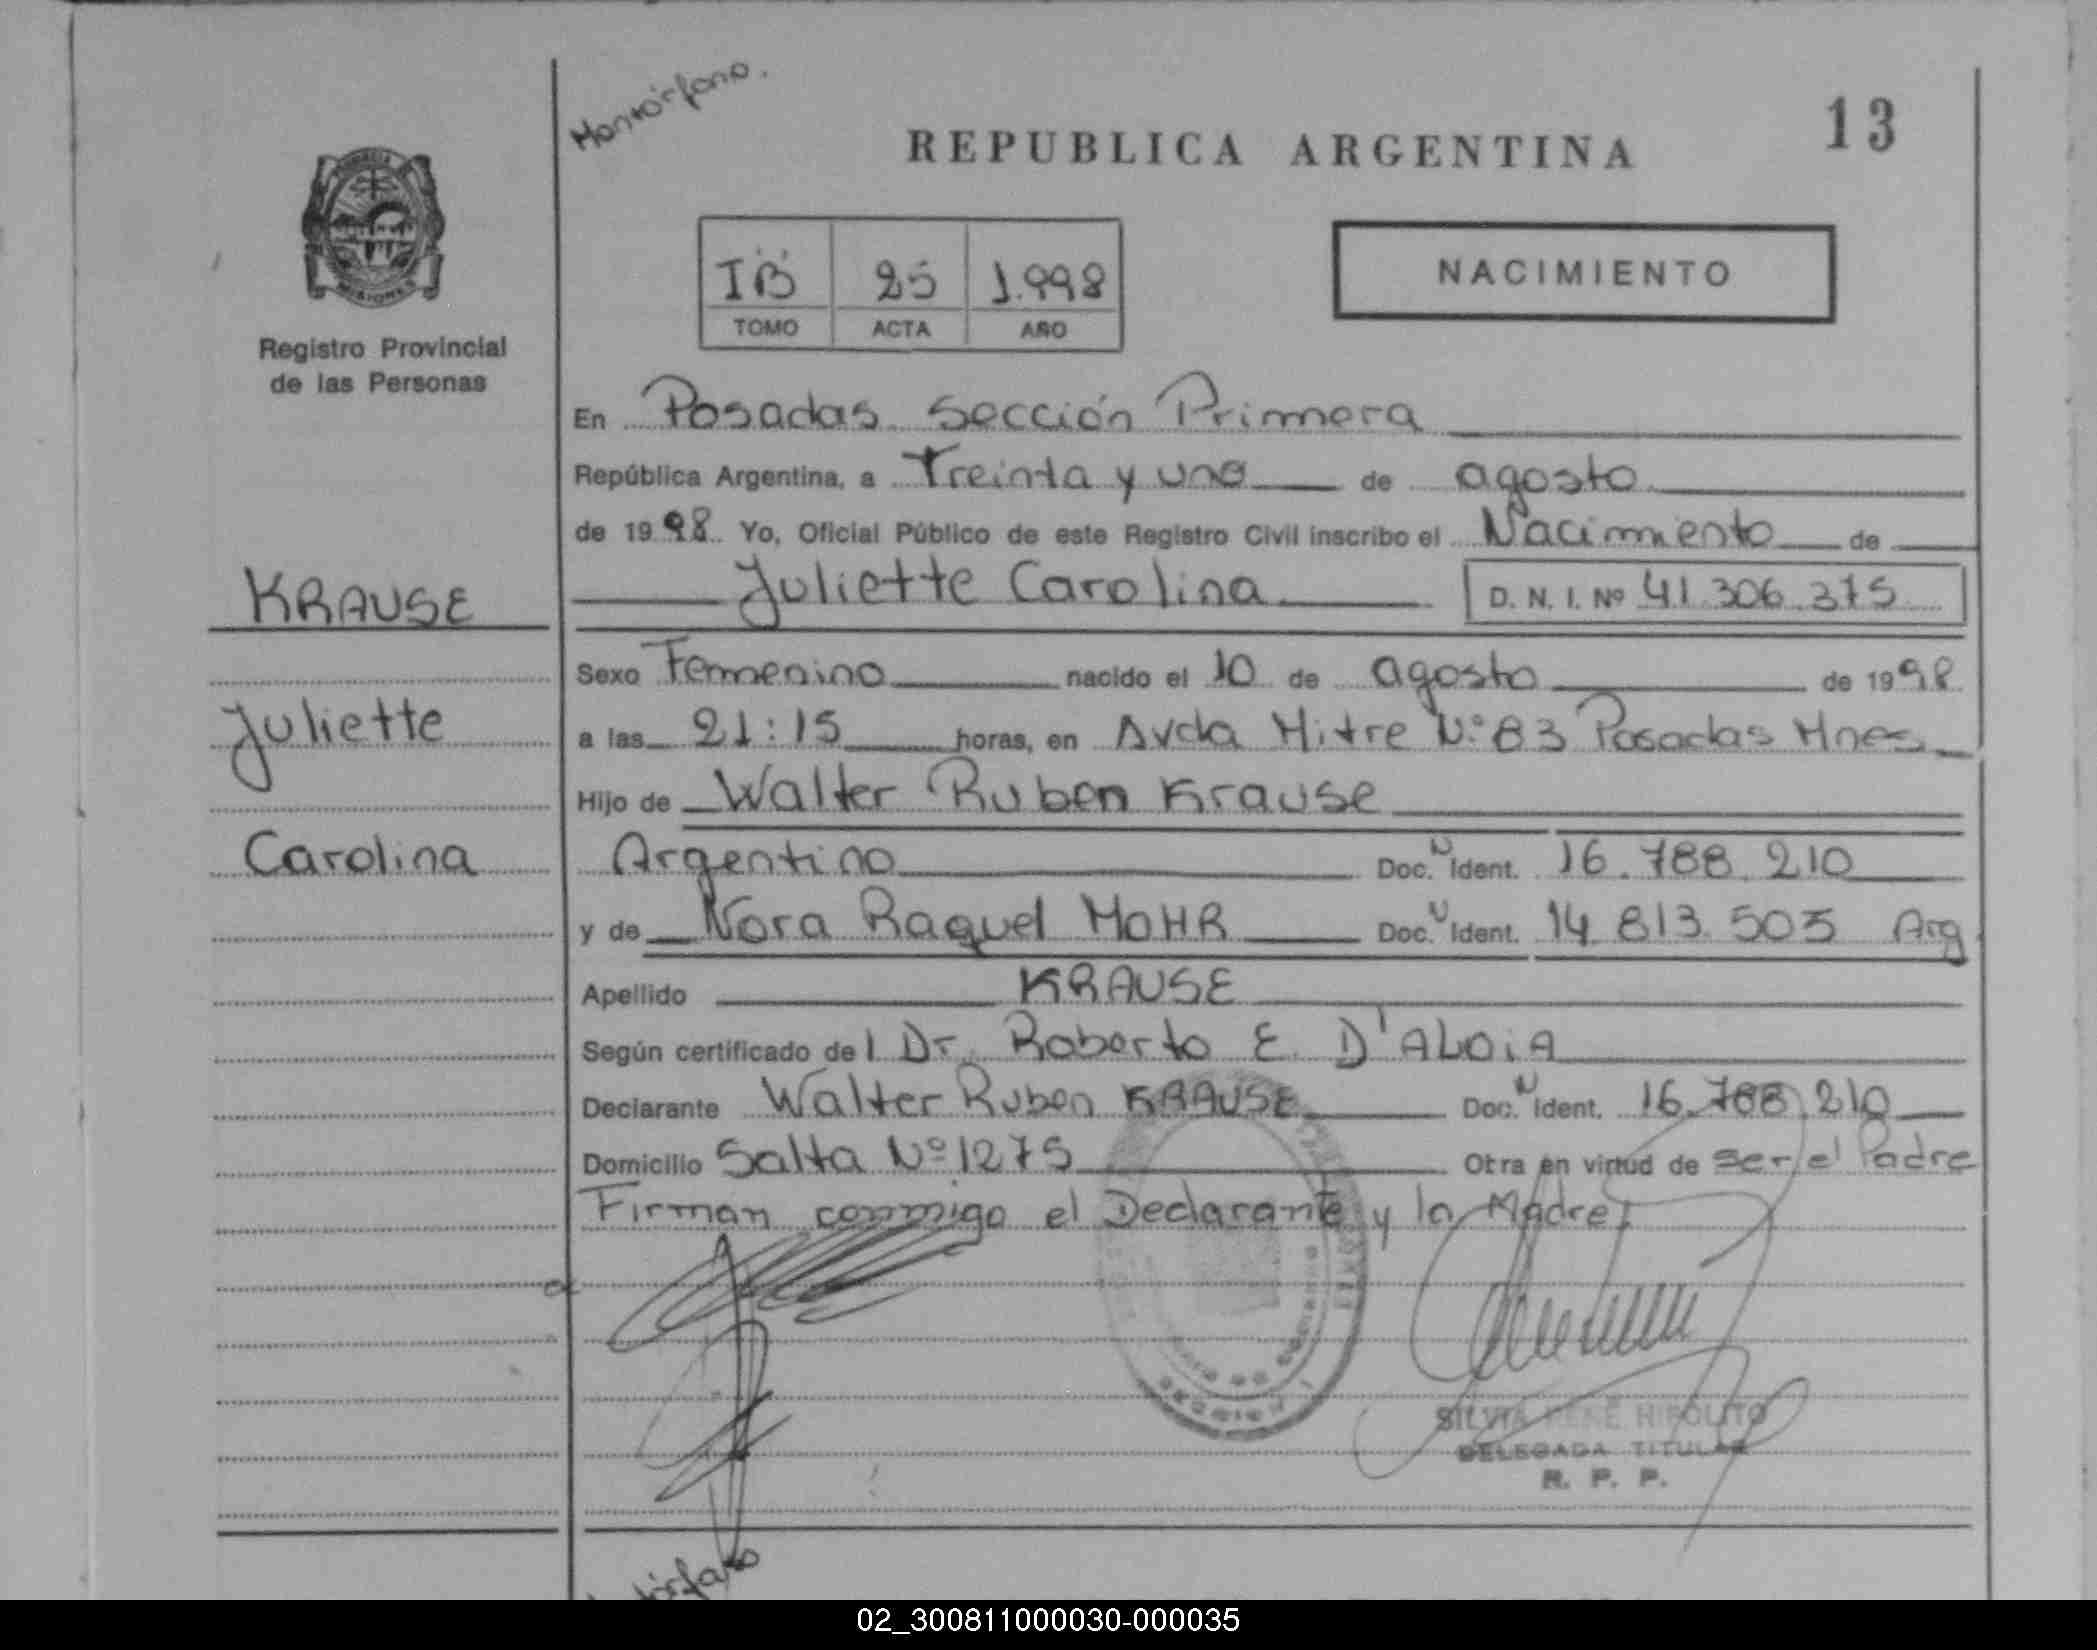 Montórfano.
REPUBLICA ARGENTINA
13
MISIONES
IB 25 1.998
TOMO ACTA AÑO
NACIMIENTO
Registro Provincial
de las Personas
En Posadas Sección Primera
República Argentina, a Treinta y uno de agosto
de 1998 Yo, Oficial Público de este Registro Civil inscribo el Nacimiento de
KRAUSE
Juliette Carolina D. N. I. Nº 41.306.375
Sexo Femenino nacido el 10 de agosto de 1998
Juliette
a las 21:15 horas, en Avda Mitre Nº 83 Posadas Mnes
Hijo de Walter Ruben Krause
Carolina
Argentino Doc. N Ident. 16.788.210
y de Nora Raquel MOHR Doc. N Ident. 14.813.503 Arg
Apellido KRAUSE
Según certificado del Dr. Roberto E. D'ALOiA
Declarante Walter Ruben KRAUSE Doc. N Ident. 16.788.210
Domicilio Salta Nº 1275 Otra en virtud de ser el Padre
Firman conmigo el Declarante y la Madre
SILVIA RENE HIPOLITO
DELEGADA TITULAR
R. P. P.
02_300811000030-000035